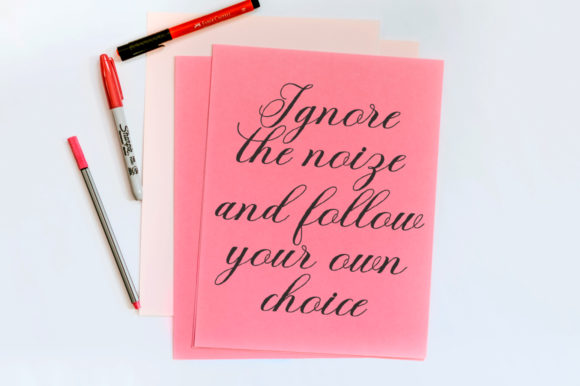 Ignore
the noize
and follow
your own
choice
Sharpie